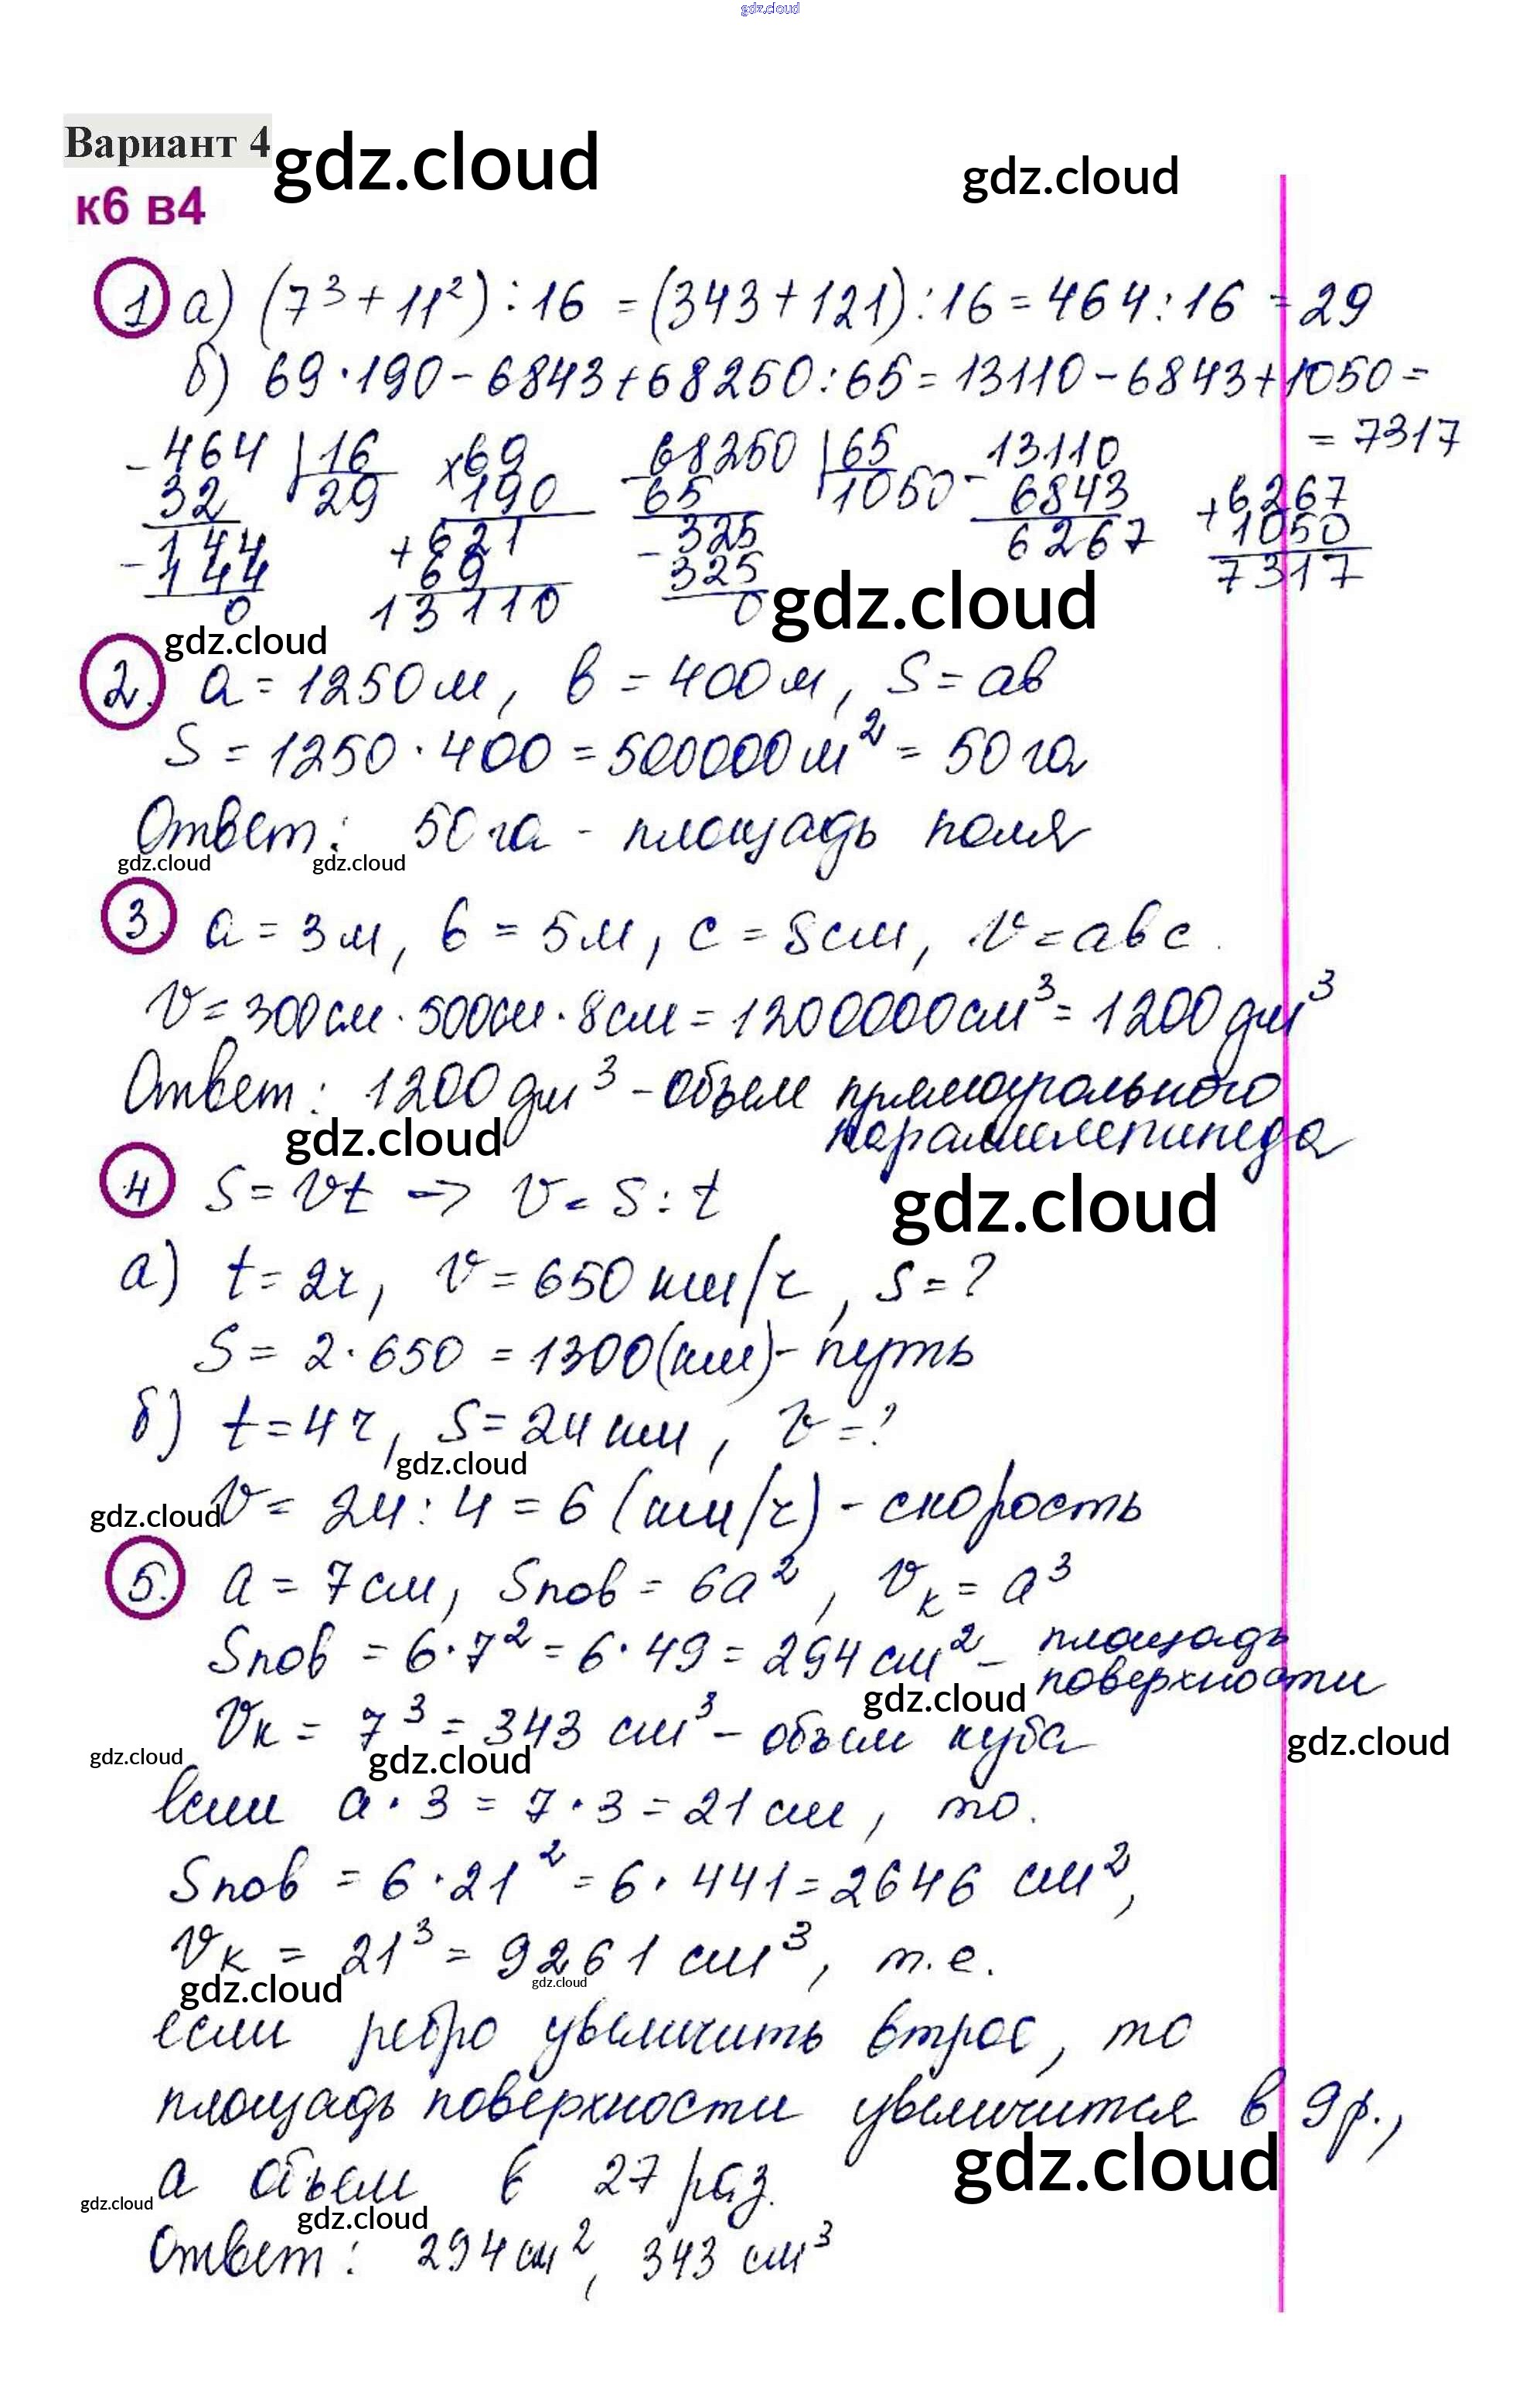 gdz.cloud
Вариант 4
gdz.cloud
gdz.cloud
к6 в4
1 а) (7³ + 11²) : 16 = (343 + 121) : 16 = 464 : 16 = 29
б) 69 · 190 - 6843 + 68250 : 65 = 13110 - 6843 + 1050 =
= 7317
- 464 | 16   × 69   - 68250 | 65   - 13110
32   29   190   65   1050   6843   + 6267
- 144   + 621   - 325   6267   1050
144   69   325   7317
0   13110   0
gdz.cloud
gdz.cloud
2. a = 1250 м, в = 400 м, S = aв
S = 1250 · 400 = 500000 м² = 50 га
Ответ: 50 га - площадь поля
gdz.cloud gdz.cloud
3. a = 3 м, b = 5 м, c = 8 см, V = aвc.
V = 300 см · 500 см · 8 см = 1200000 см³ = 1200 дм³
Ответ: 1200 дм³ - объем прямоугольного
параллелепипеда
gdz.cloud
gdz.cloud
4 S = Vt -> V = S : t
а) t = 2ч, V = 650 км/ч, S = ?
S = 2 · 650 = 1300 (км) - путь
б) t = 4ч, S = 24 км, V = ?
gdz.cloud
gdz.cloud
V = 24 : 4 = 6 (км/ч) - скорость
5. a = 7 см, Sпов = 6a², Vк = a³
Sпов = 6 · 7² = 6 · 49 = 294 см² - площадь
поверхности
gdz.cloud
Vк = 7³ = 343 см³ - объем куба
gdz.cloud
gdz.cloud
gdz.cloud
если a · 3 = 7 · 3 = 21 см, то.
Sпов = 6 · 21² = 6 · 441 = 2646 см²,
Vк = 21³ = 9261 см³, т.е.
gdz.cloud
gdz.cloud
если ребро увеличить втрое, то
площадь поверхности увеличится в 9 р.,
gdz.cloud
а объем в 27 раз.
gdz.cloud
gdz.cloud
Ответ: 294 см², 343 см³